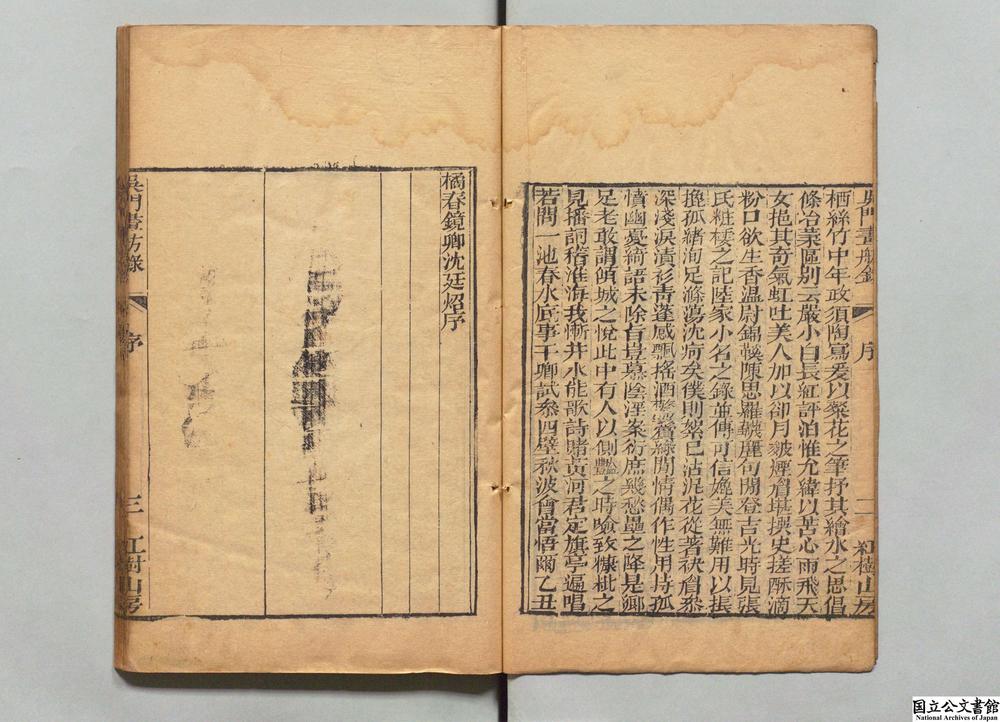 吳門畫舫錄 序 二 紅樹山房
栖絲竹中年政須陶寫爰以粲花之筆抒其繪水之思倡
條冶葉區别云嚴小白長紅評泊惟允緯以苦心雨飛天
女挹其奇氣虹吐美人加以卻月皴煙眉堪撰史搓酥滴
粉口欲生香溫尉錦鞵陳思羅襪麗句閒登吉光時見張
氏粧樓之記陸家小名之錄並傳可信媲美無難用以振
㧞孤緒洵足滌蕩沈疴矣僕則絮已沾泥花從著袂眉黛
深淺淚漬衫青蓬感飄搖酒鬢綠閒情偶作性用持孤
憤幽憂綺語未除旨豈慕陰淫案衍庶幾愁壘之降是鄉
足老敢謂傾城之悅此中有人以側豔之時嗆致糠粃之
見播詞稽淮海我慚井水能歌詩賭黃河君定旗亭遍唱
若問一池春水底事干卿試參四壁秋波會當悟爾乙丑
橘春鏡卿沈廷炤序
吳門畫舫錄 序 三 紅樹山房
国立公文書館
National Archives of Japan